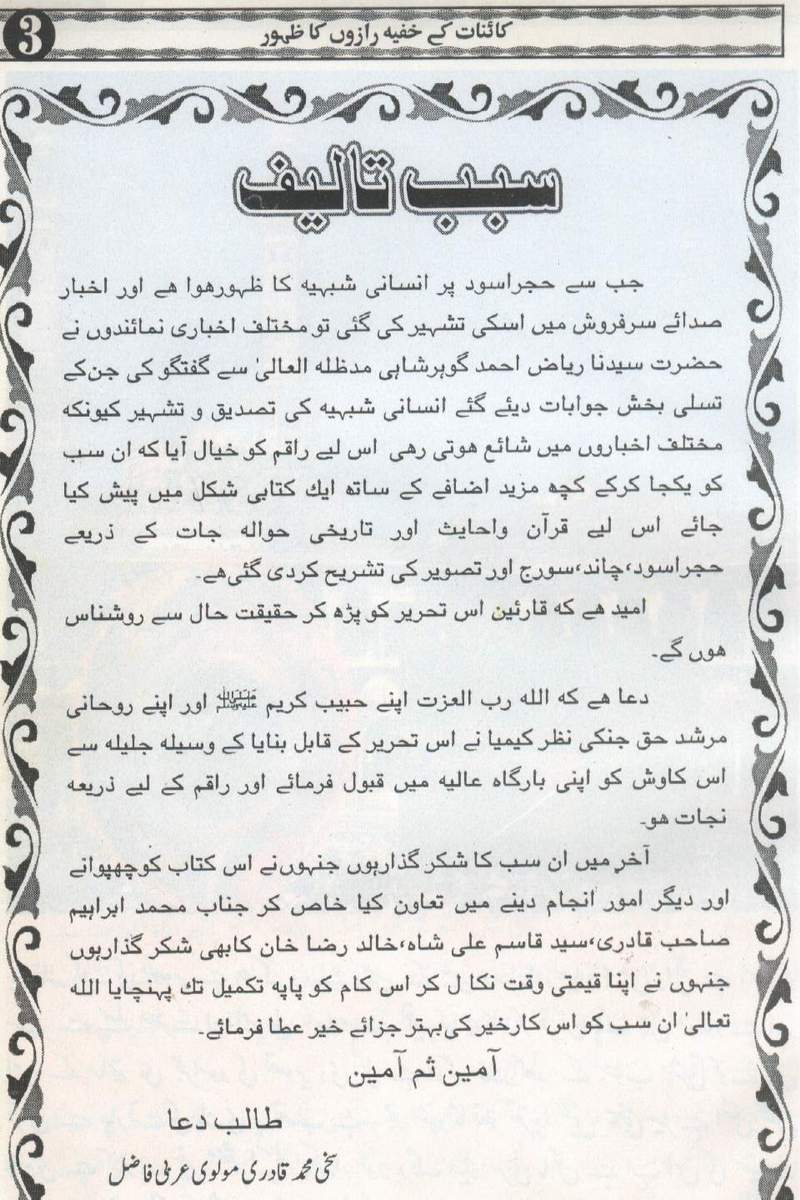 کائنات کے خفیہ رازوں کا ظہور
3
سبب تالیف
جب سے حجراسود پر انسانی شبھیہ کا ظہورھوا ھے اور اخبار
صدائے سرفروش میں اسکی تشہیر کی گئی تو مختلف اخباری نمائندوں نے
حضرت سیدنا ریاض احمد گوہرشاہی مدظلہ العالیٰ سے گفتگو کی جن کے
تسلی بخش جوابات دیئے گئے انسانی شبھیہ کی تصدیق و تشہیر کیونکہ
مختلف اخباروں میں شائع ھوتی رھی اس لیے راقم کو خیال آیا کہ ان سب
کو یکجا کرکے کچھ مزید اضافے کے ساتھ ایك کتابی شکل میں پیش کیا
جائے اس لیے قرآن واحایث اور تاریخی حوالہ جات کے ذریعے
حجراسود،چاند،سورج اور تصویر کی تشریح کردی گئی ھے۔
امید ھے کہ قارئین اس تحریر کو پڑھ کر حقیقت حال سے روشناس
ھوں گے۔
دعا ھے کہ اللہ رب العزت اپنے حبیب کریم ﷺ اور اپنے روحانی
مرشد حق جنکی نظر کیمیا نے اس تحریر کے قابل بنایا کے وسیلہ جلیلہ سے
اس کاوش کو اپنی بارگاہ عالیہ میں قبول فرمائے اور راقم کے لیے ذریعہ
نجات ھو۔
آخر میں ان سب کا شکر گذارہوں جنہوں نے اس کتاب کوچھپوانے
اور دیگر امور انجام دینے میں تعاون کیا خاص کر جناب محمد ابراہیم
صاحب قادری،سید قاسم علی شاہ،خالد رضا خان کابھی شکر گذارہوں
جنہوں نے اپنا قیمتی وقت نکا ل کر اس کام کو پاپہ تکمیل تك پہنچایا اللہ
تعالیٰ ان سب کو اس کارخیر کی بہتر جزائے خیر عطا فرمائے۔
آمین ثم آمین
طالب دعا
سخی محمد قادری مولوی عربی فاضل